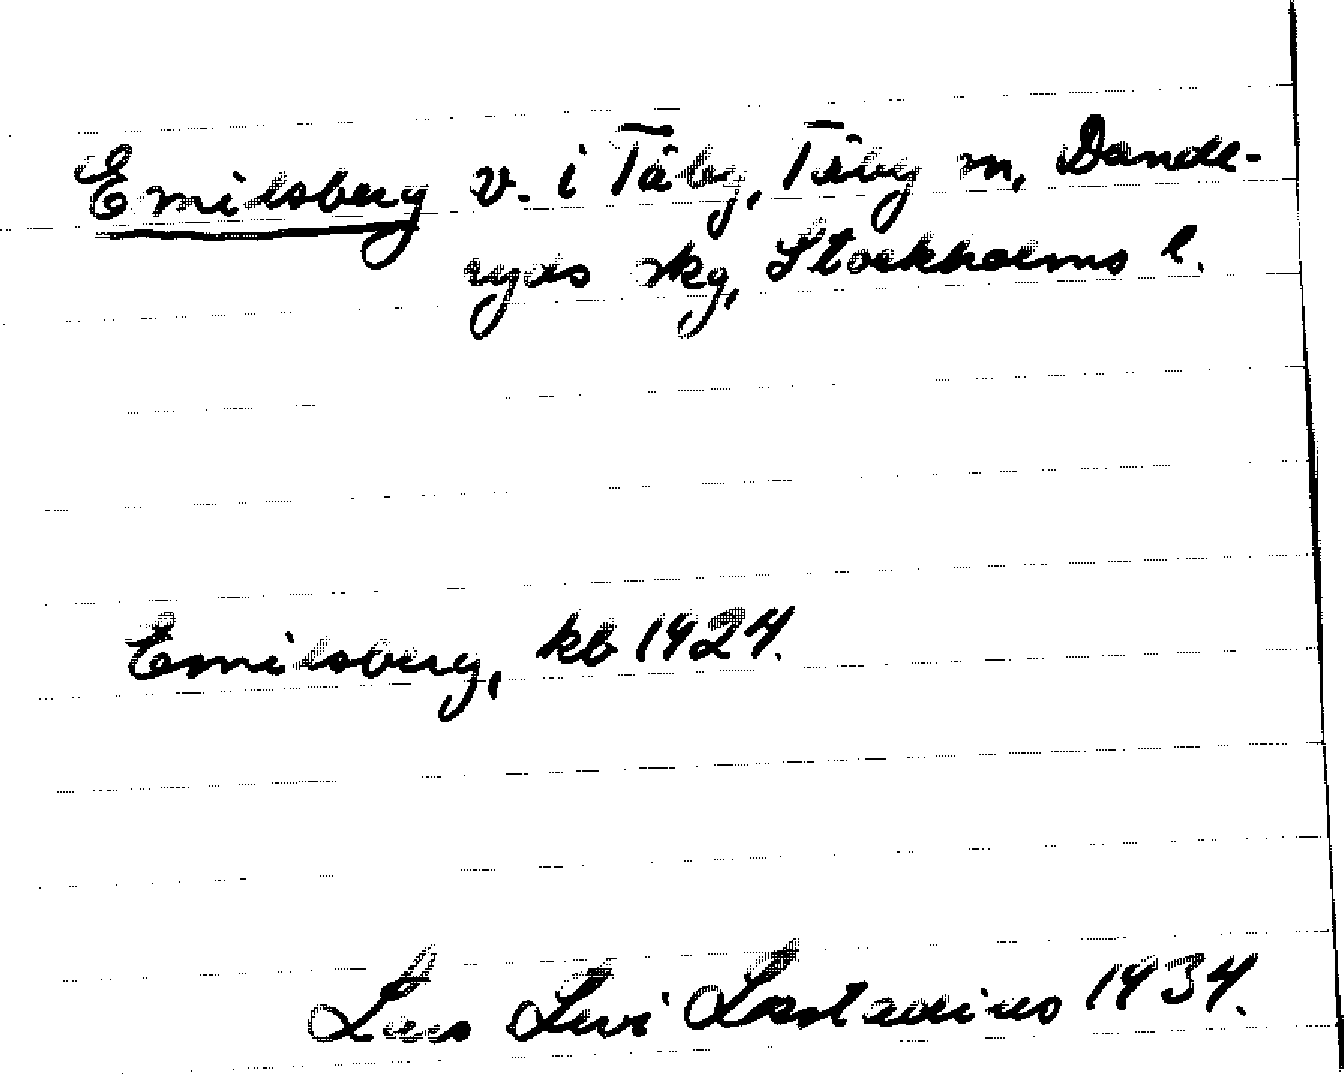 Emilsberg v. i Täby, Täby sn, Dande-
ryds skg, Stockholms l.
Emilsberg, kb 1924.
Lars Levi Læstadius 1934.